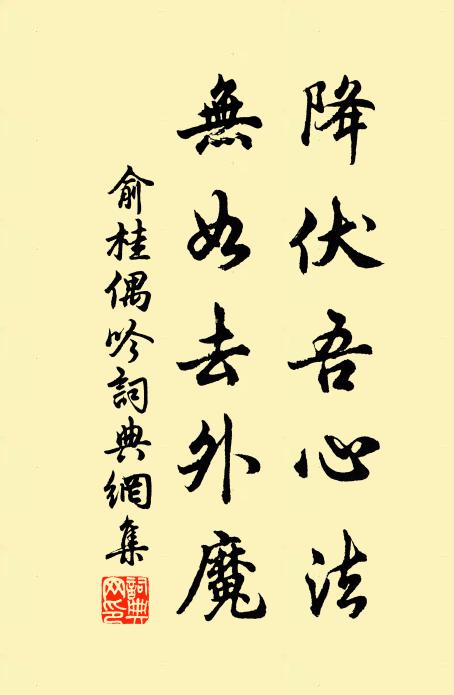 降伏吾心法
無如去外魔
俞桂偶吟詞典網集
詞典网印